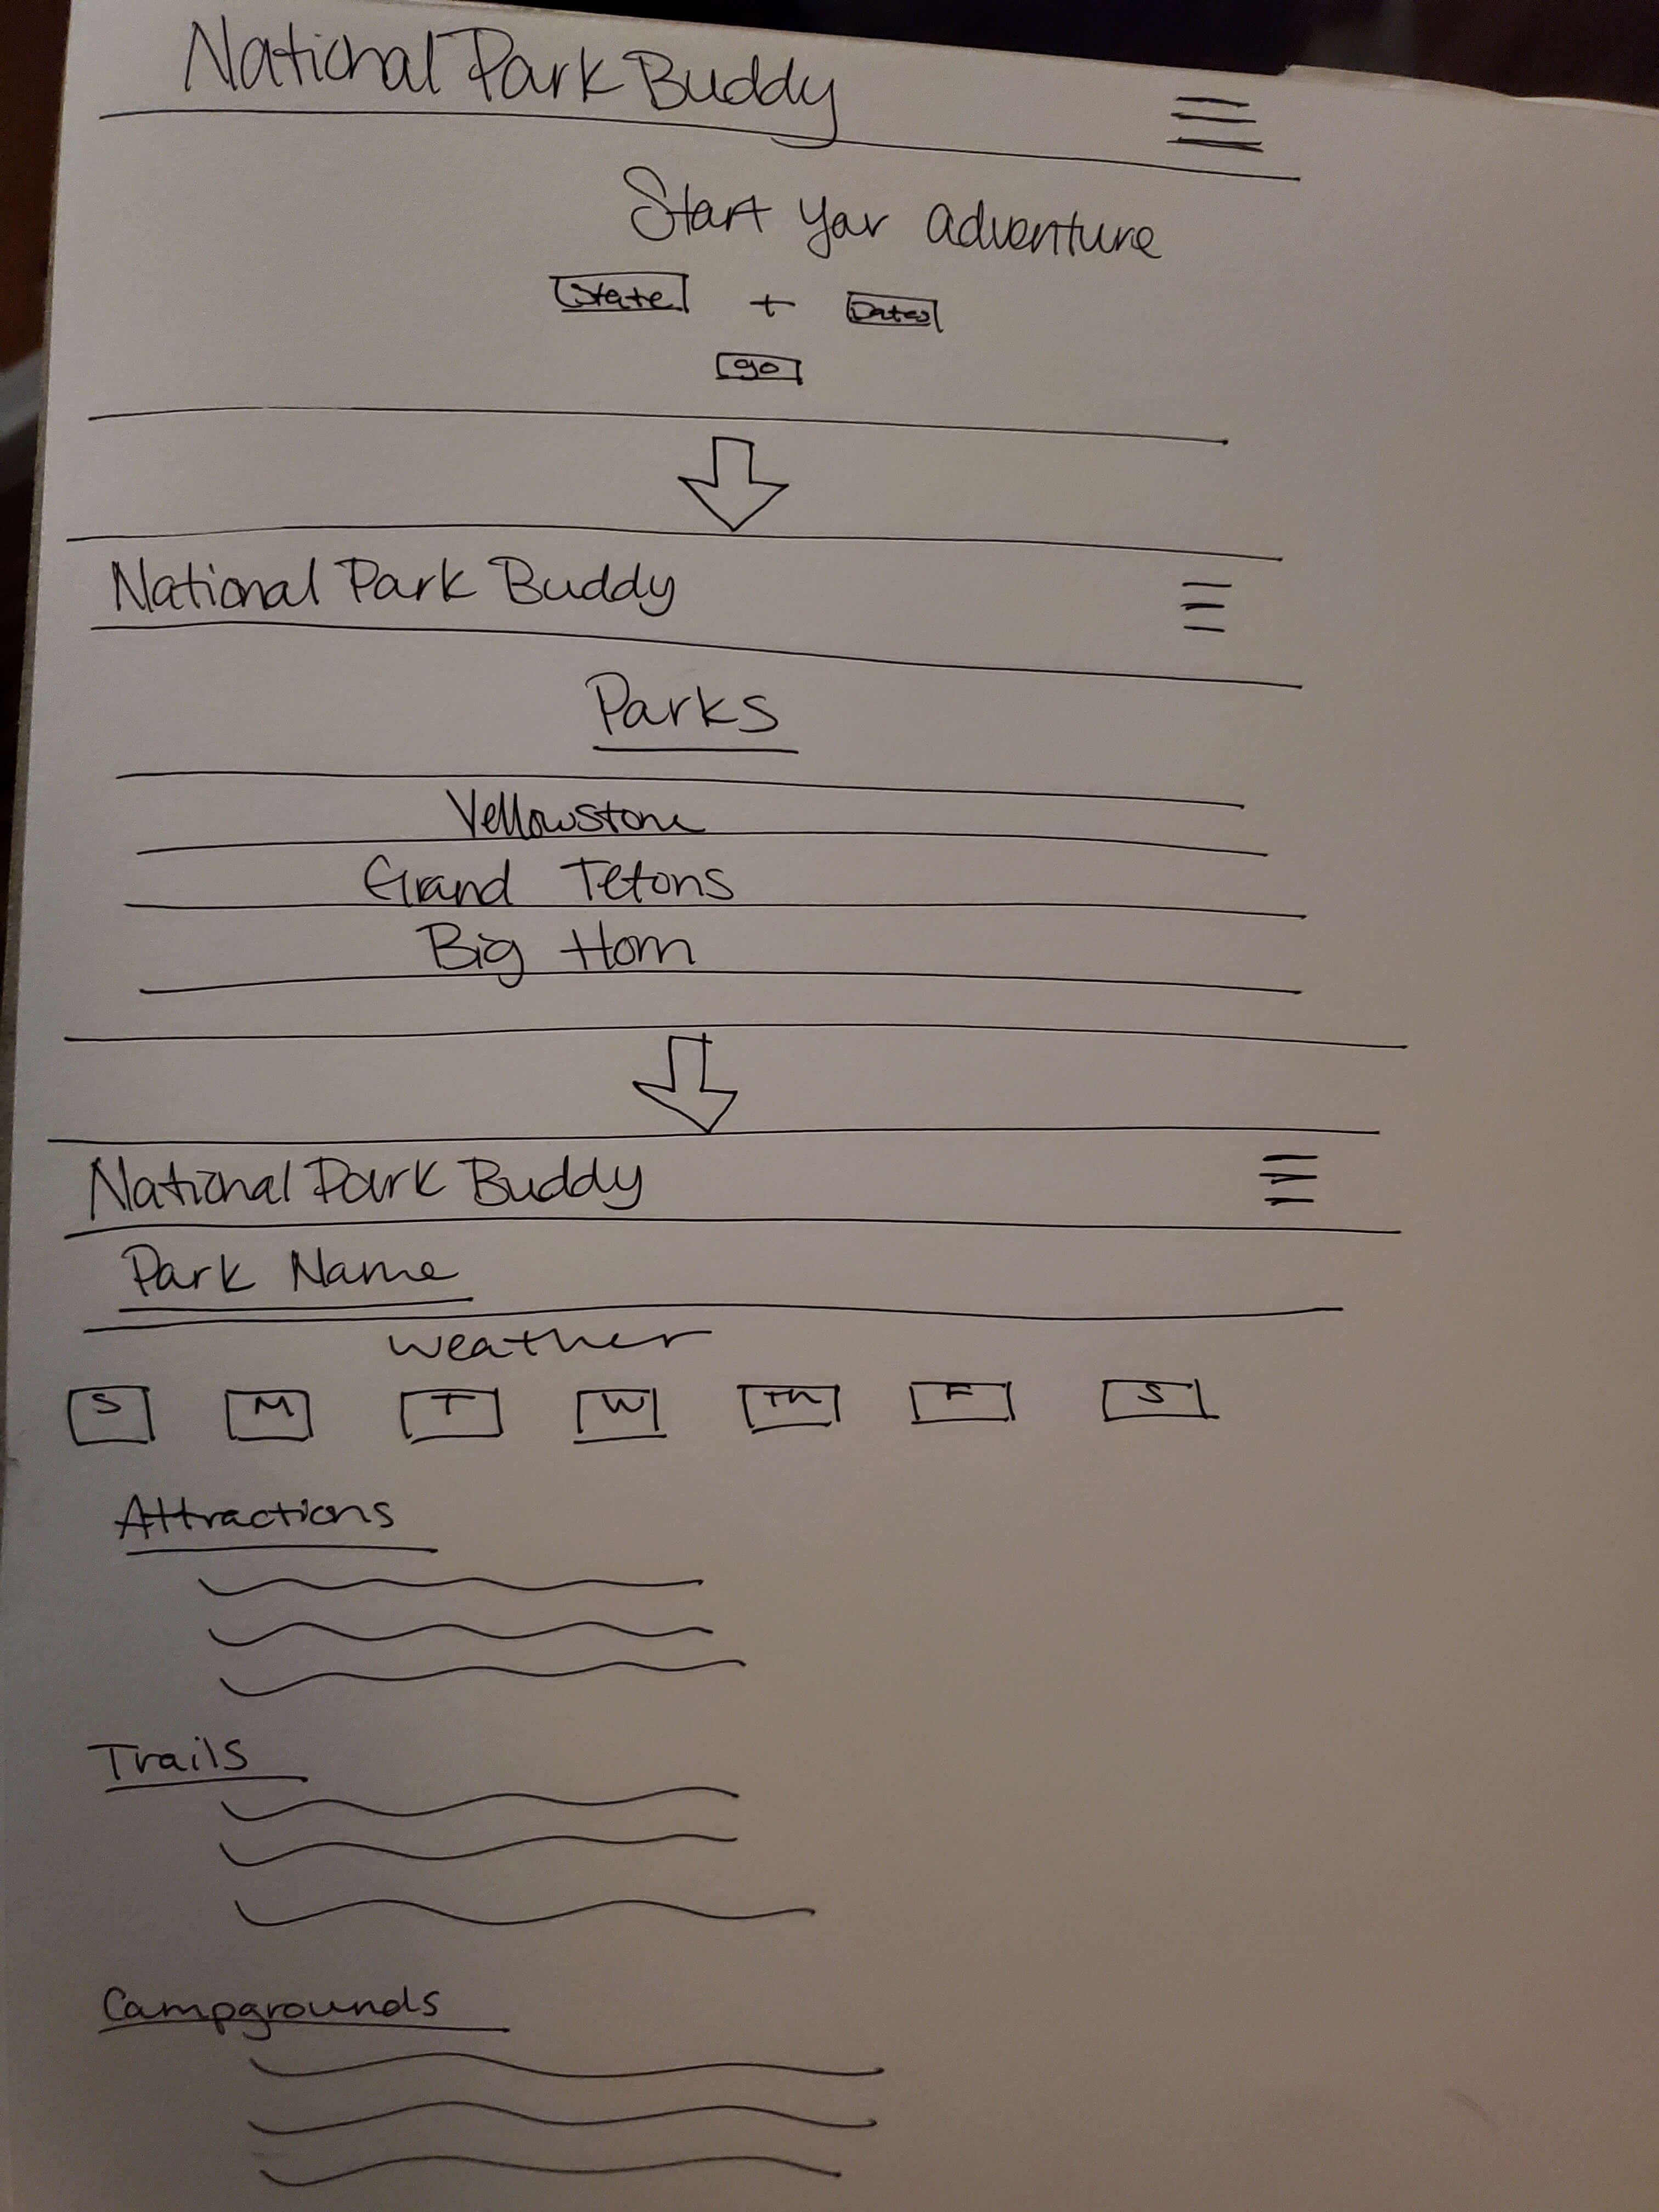 National Park Buddy
Start your adventure
State + Dates
go
National Park Buddy
Parks
Yellowstone
Grand Tetons
Big Horn
National Park Buddy
Park Name
weather
S M T W Th F S
Attractions
Trails
Campgrounds